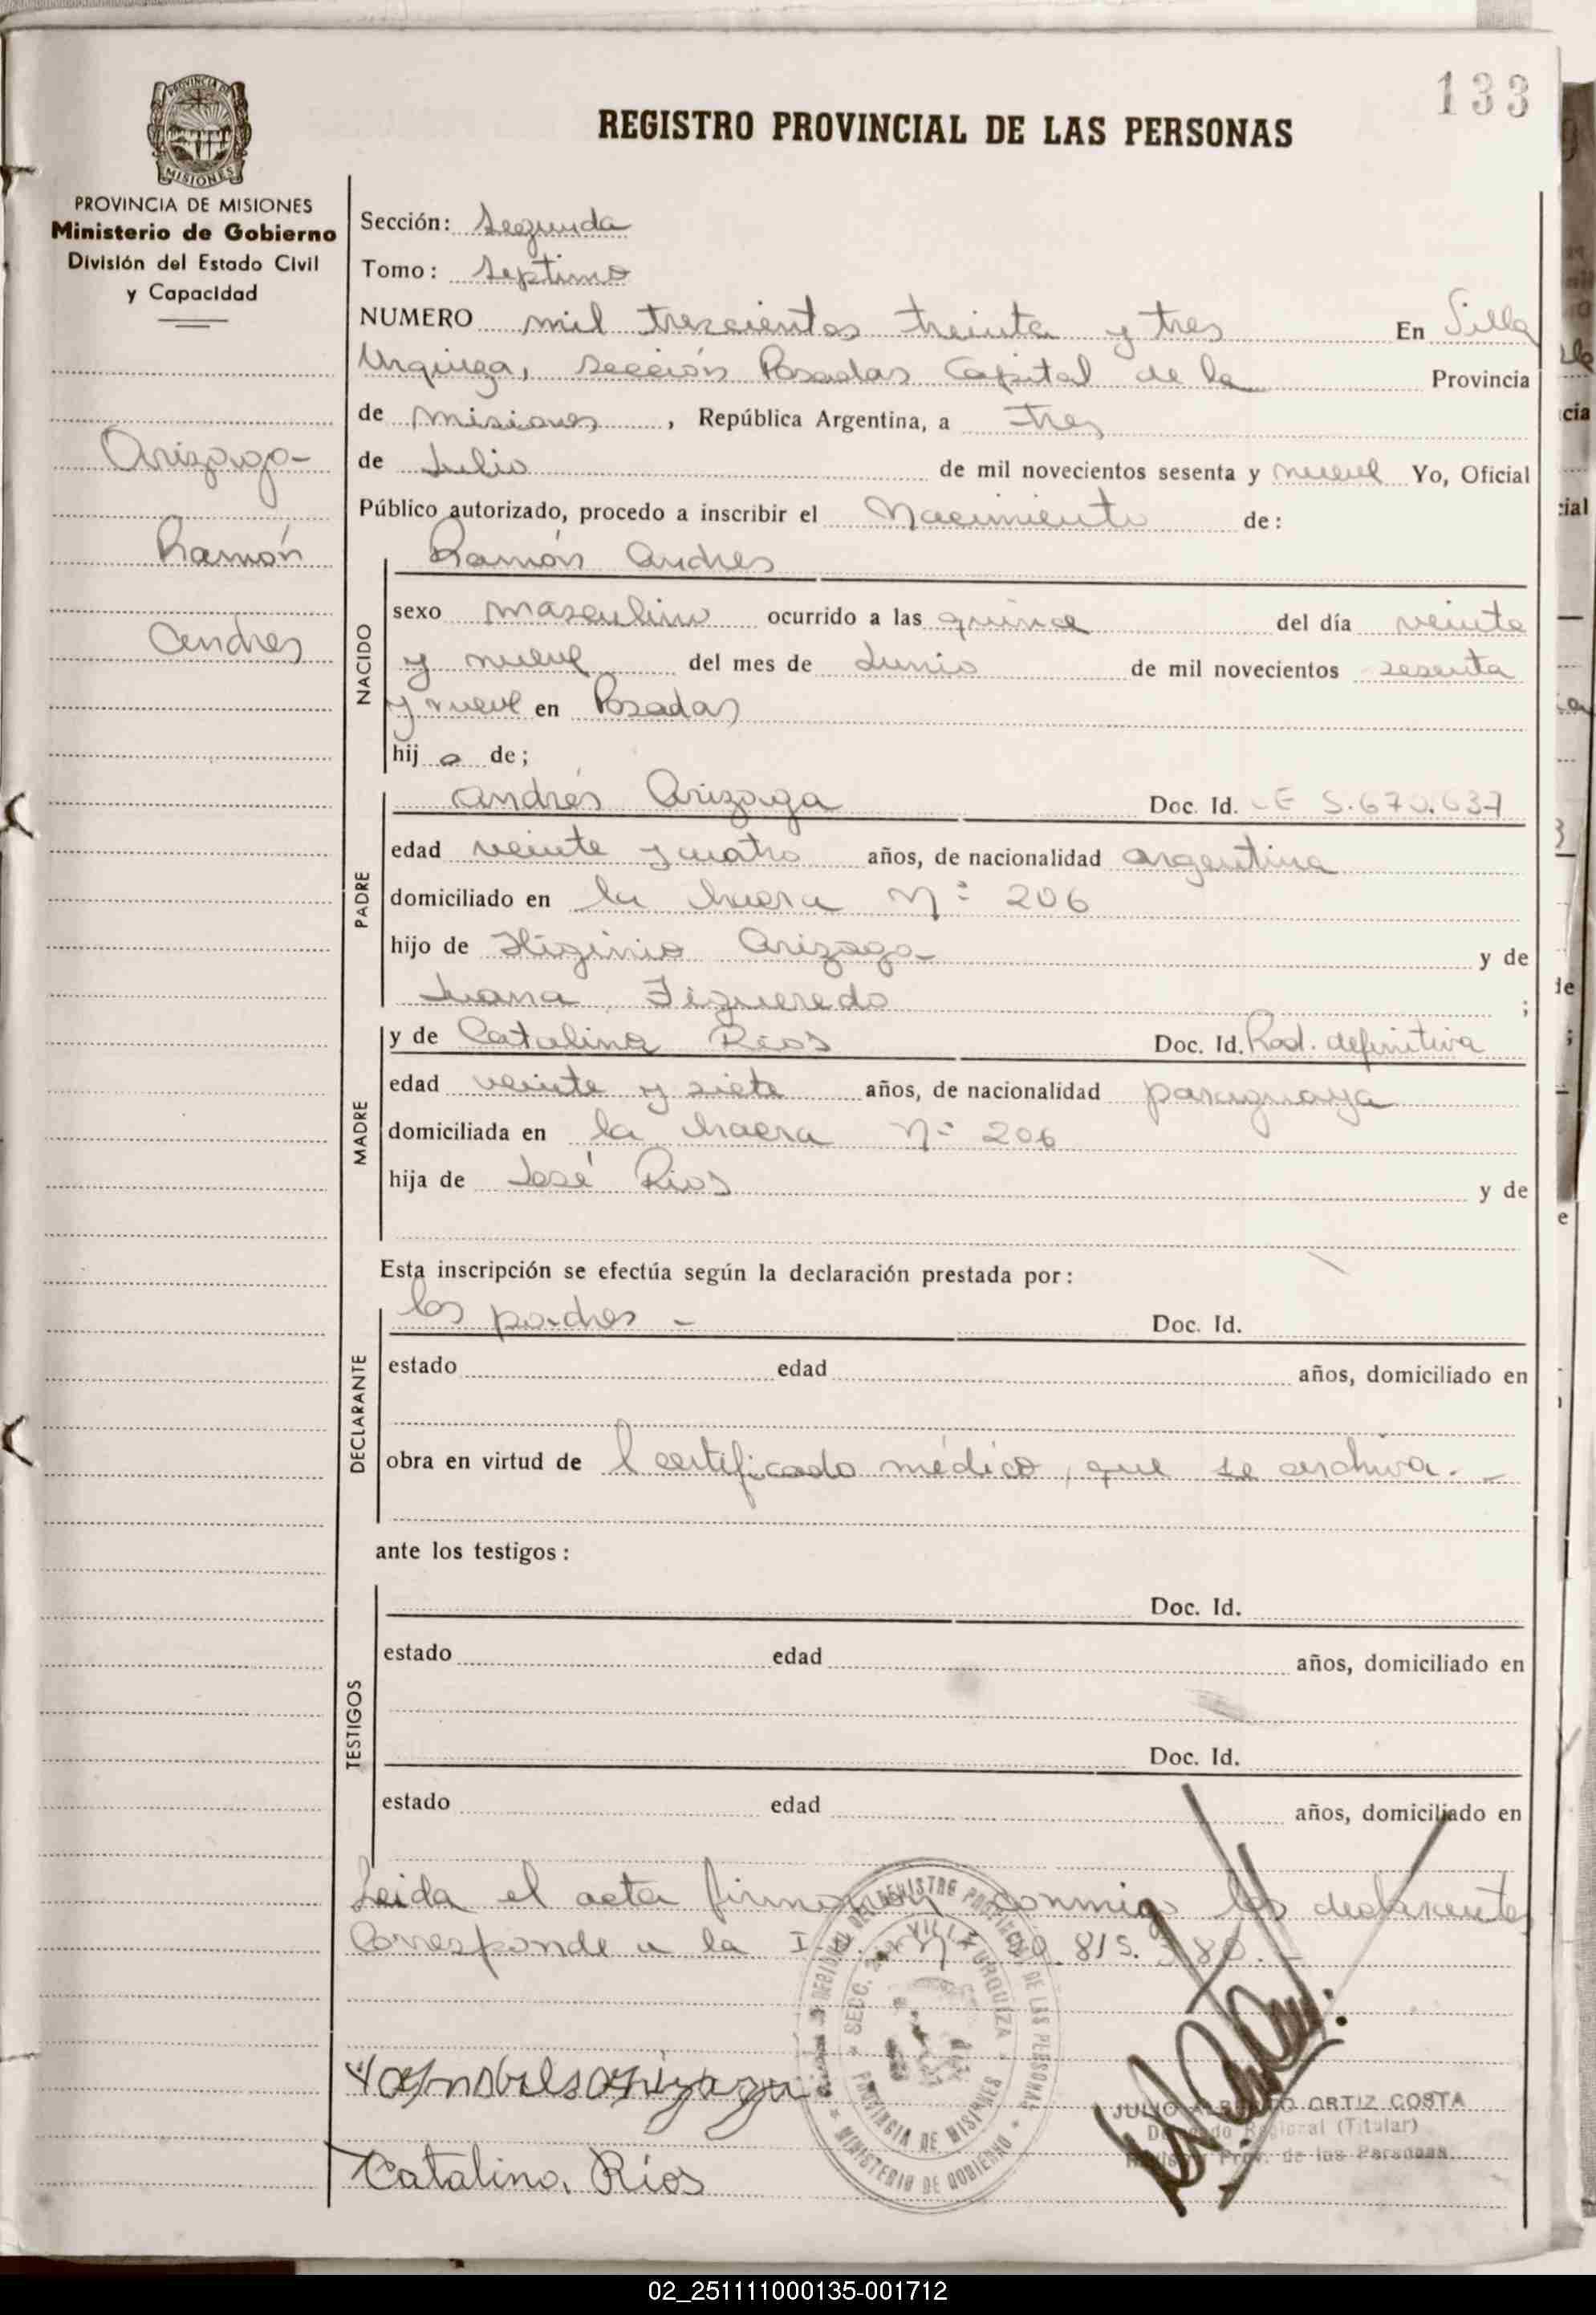 133
PROVINCIA DE
MISIONES
REGISTRO PROVINCIAL DE LAS PERSONAS
PROVINCIA DE MISIONES
Ministerio de Gobierno
División del Estado Civil
y Capacidad
Arizaga-
Ramón
Andres
Sección: Segunda
Tomo: Septimo
NUMERO mil trescientos treinta y tres En Villa
Urquiza, sección Posadas Capital de la Provincia
de Misiones, República Argentina, a tres
de Julio de mil novecientos sesenta y nueve Yo, Oficial
Público autorizado, procedo a inscribir el Nacimiento de:
NACIDO
Ramón Andres
sexo masculino ocurrido a las quince del día veinte
y nueve del mes de Junio de mil novecientos sesenta
y nueve en Posadas
hij o de;
PADRE
Andrés Arizaga Doc. Id. LE 5.670.637
edad veinte y cuatro años, de nacionalidad argentina
domiciliado en la chacra Nº 206
hijo de Higinio Arizaga- y de
Juana Figueredo ;
MADRE
y de Catalina Rios Doc. Id. Rad. definitiva
edad veinte y siete años, de nacionalidad paraguaya
domiciliada en la chacra Nº 206
hija de José Rios y de
Esta inscripción se efectúa según la declaración prestada por:
DECLARANTE
los padres - Doc. Id.
estado edad años, domiciliado en
obra en virtud de l certificado médico, que se archiva.-
ante los testigos:
TESTIGOS
Doc. Id.
estado edad años, domiciliado en
Doc. Id.
estado edad años, domiciliado en
Leida el acta firman conmigo los declarantes
Corresponde a la 815.380.-
REGISTRO PROVINCIAL DE LAS PERSONAS
SECC. 2da VILLA URQUIZA
PROVINCIA DE MISIONES
MINISTERIO DE GOBIERNO
arizaga
Catalina Rios
JULIO ALBERTO ORTIZ COSTA
Delegado Regional (Titular)
Prov. de las Personas
02_251111000135-001712